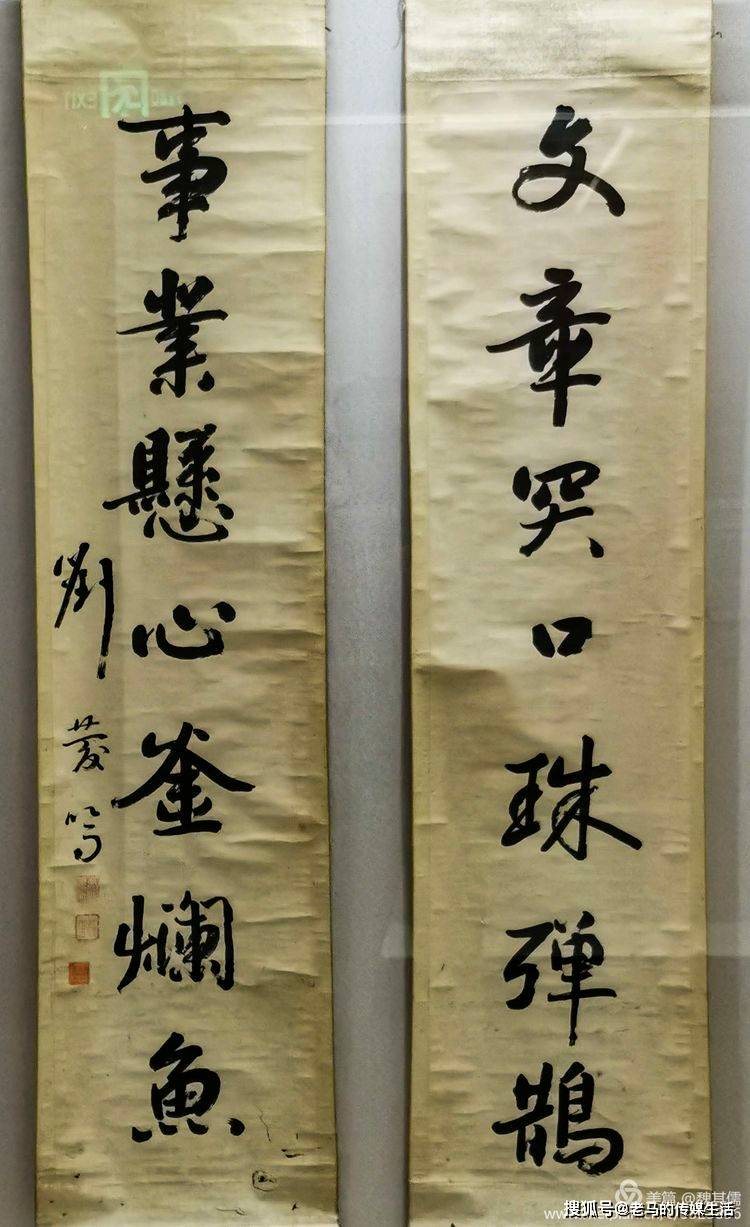 文章口珠弹鵲
事業懸心釜爛魚
劉
美篇 @魏其儒
搜狐号@老马的传媒生活